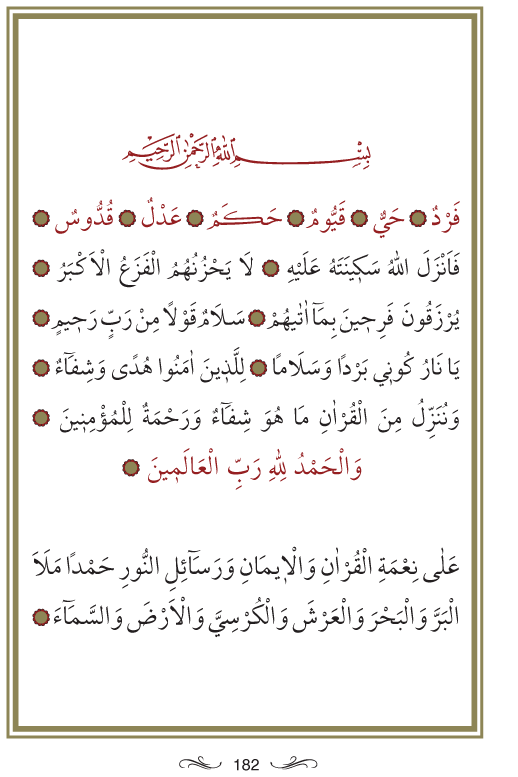 بِسْمِ اللهِ الرَّحْمٰنِ الرَّحِيمِ
فَرْدٌ ۞ حَيٌّ ۞ قَيُّومٌ ۞ حَكَمٌ ۞ عَدْلٌ ۞ قُدُّوسٌ ۞
فَاَنْزَلَ اللهُ سَكٖينَتَهُ عَلَيْهِ ۞ لَا يَحْزُنُهُمُ الْفَزَعُ الْاَكْبَرُ ۞
يُرْزَقُونَ فَرِحٖينَ بِمَٓا اٰتٰيهُمْ ۞ سَلَامٌ قَوْلًا مِنْ رَبٍّ رَحٖيمٍ ۞
يَا نَارُ كُونٖي بَرْدًا وَسَلَامًا ۞ لِلَّذٖينَ اٰمَنُوا هُدًى وَشِفَٓاءٌ ۞
وَنُنَزِّلُ مِنَ الْقُرْاٰنِ مَا هُوَ شِفَٓاءٌ وَرَحْمَةٌ لِلْمُؤْمِنٖينَ ۞
وَالْحَمْدُ لِلهِ رَبِّ الْعَالَمٖينَ ۞
عَلٰى نِعْمَةِ الْقُرْاٰنِ وَالْاٖيمَانِ وَرَسَٓائِلِ النُّورِ حَمْدًا مَلَاَ
الْبَرَّ وَالْبَحْرَ وَالْعَرْشَ وَالْكُرْسِيَّ وَالْاَرْضَ وَالسَّمَٓاءَ ۞
182